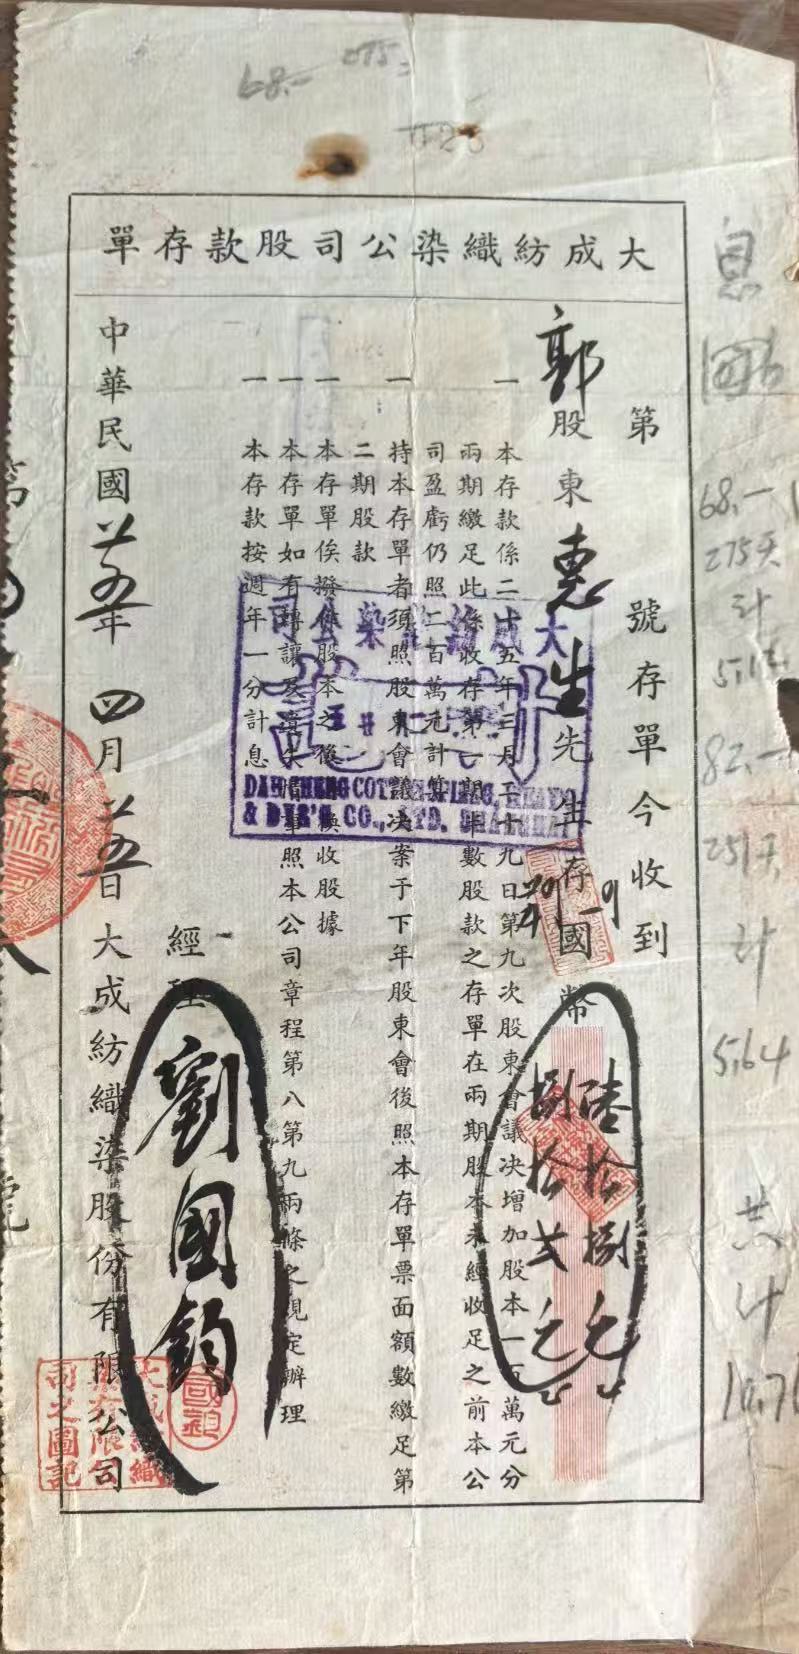 68.- 275
大成紡織染公司股款存單
第 號存單今收到
郭股東惠生先生存國幣
陸拾捌元
捌拾弍元
一 本存款係二十五年三月二十九日第九次股東會議决增加股本一百萬元分
兩期繳足此係收存第一期半數股款之存單在兩期股本未經收足之前本公
司盈虧仍照二百萬元計算
一 持本存單者須照股東會議决案于下年股東會後照本存單票面額數繳足第
二期股款
一 本存單俟撥作股本之後換收股據
一 本存單如有轉讓及遺失情事照本公司章程第八第九兩條之規定辦理
一 本存款按週年一分計息
經理
劉國鈞
中華民國廿五年四月廿五日大成紡織染股份有限公司
大成紡織染公司
DAH CHENG COTTON SPING, WEAVG
& DYE'G CO., LTD. SHANGHAI
國鈞
大成紡織
染有限公
司之圖記
息
68.-
275天
計
82.-
251天
計
5.64
共計
號